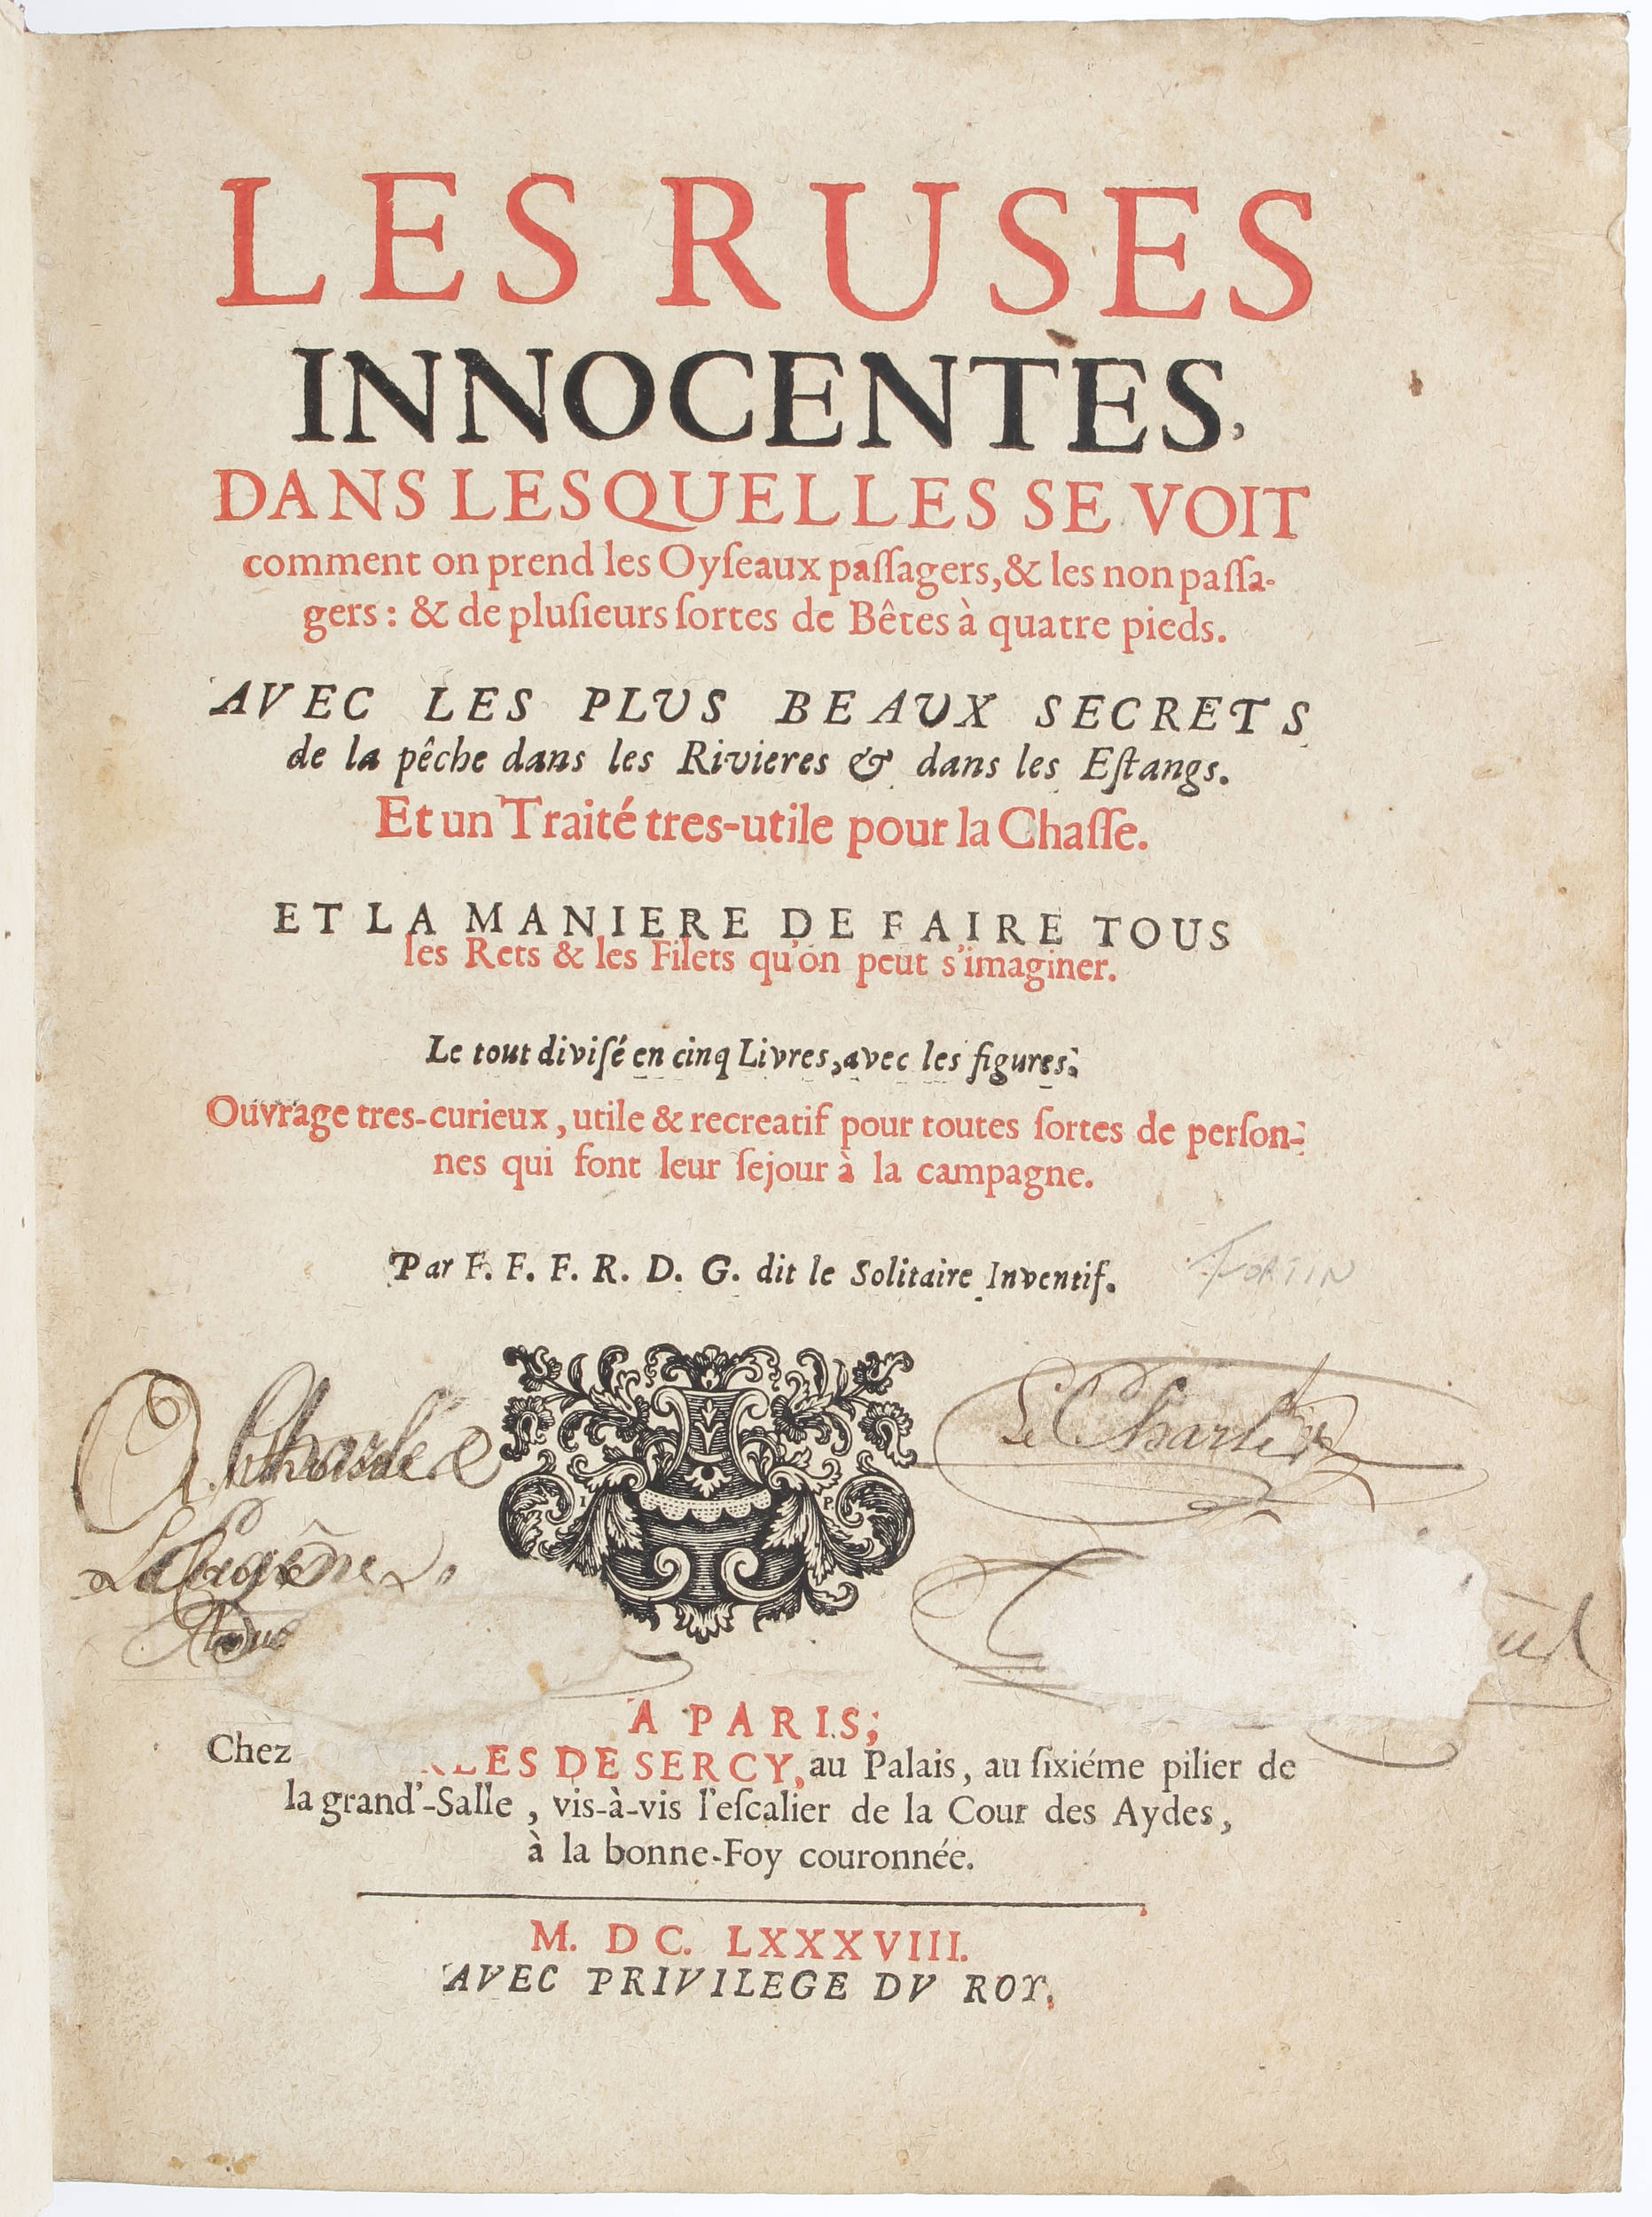 LES RUSES
INNOCENTES,
DANS LESQUELLES SE VOIT
comment on prend les Oyſeaux paſſagers, & les non paſſa-
gers : & de pluſieurs ſortes de Bêtes à quatre pieds.
AVEC LES PLUS BEAUX SECRETS
de la pêche dans les Rivieres & dans les Eſtangs.
Et un Traité tres-utile pour la Chaſſe.
ET LA MANIERE DE FAIRE TOUS
les Rets & les Filets qu'on peut s'imaginer.
Le tout diviſé en cinq Livres, avec les figures.
Ouvrage tres-curieux, utile & recreatif pour toutes ſortes de perſon-
nes qui font leur ſejour à la campagne.
Par F. F. F. R. D. G. dit le Solitaire Inventif.
FORTIN
I P
Le Charlier
A PARIS;
Chez LES DE SERCY, au Palais, au ſixiéme pilier de
la grand'-Salle, vis-à-vis l'eſcalier de la Cour des Aydes,
à la bonne-Foy couronnée.
M. DC. LXXXVIII.
AVEC PRIVILEGE DV ROY.